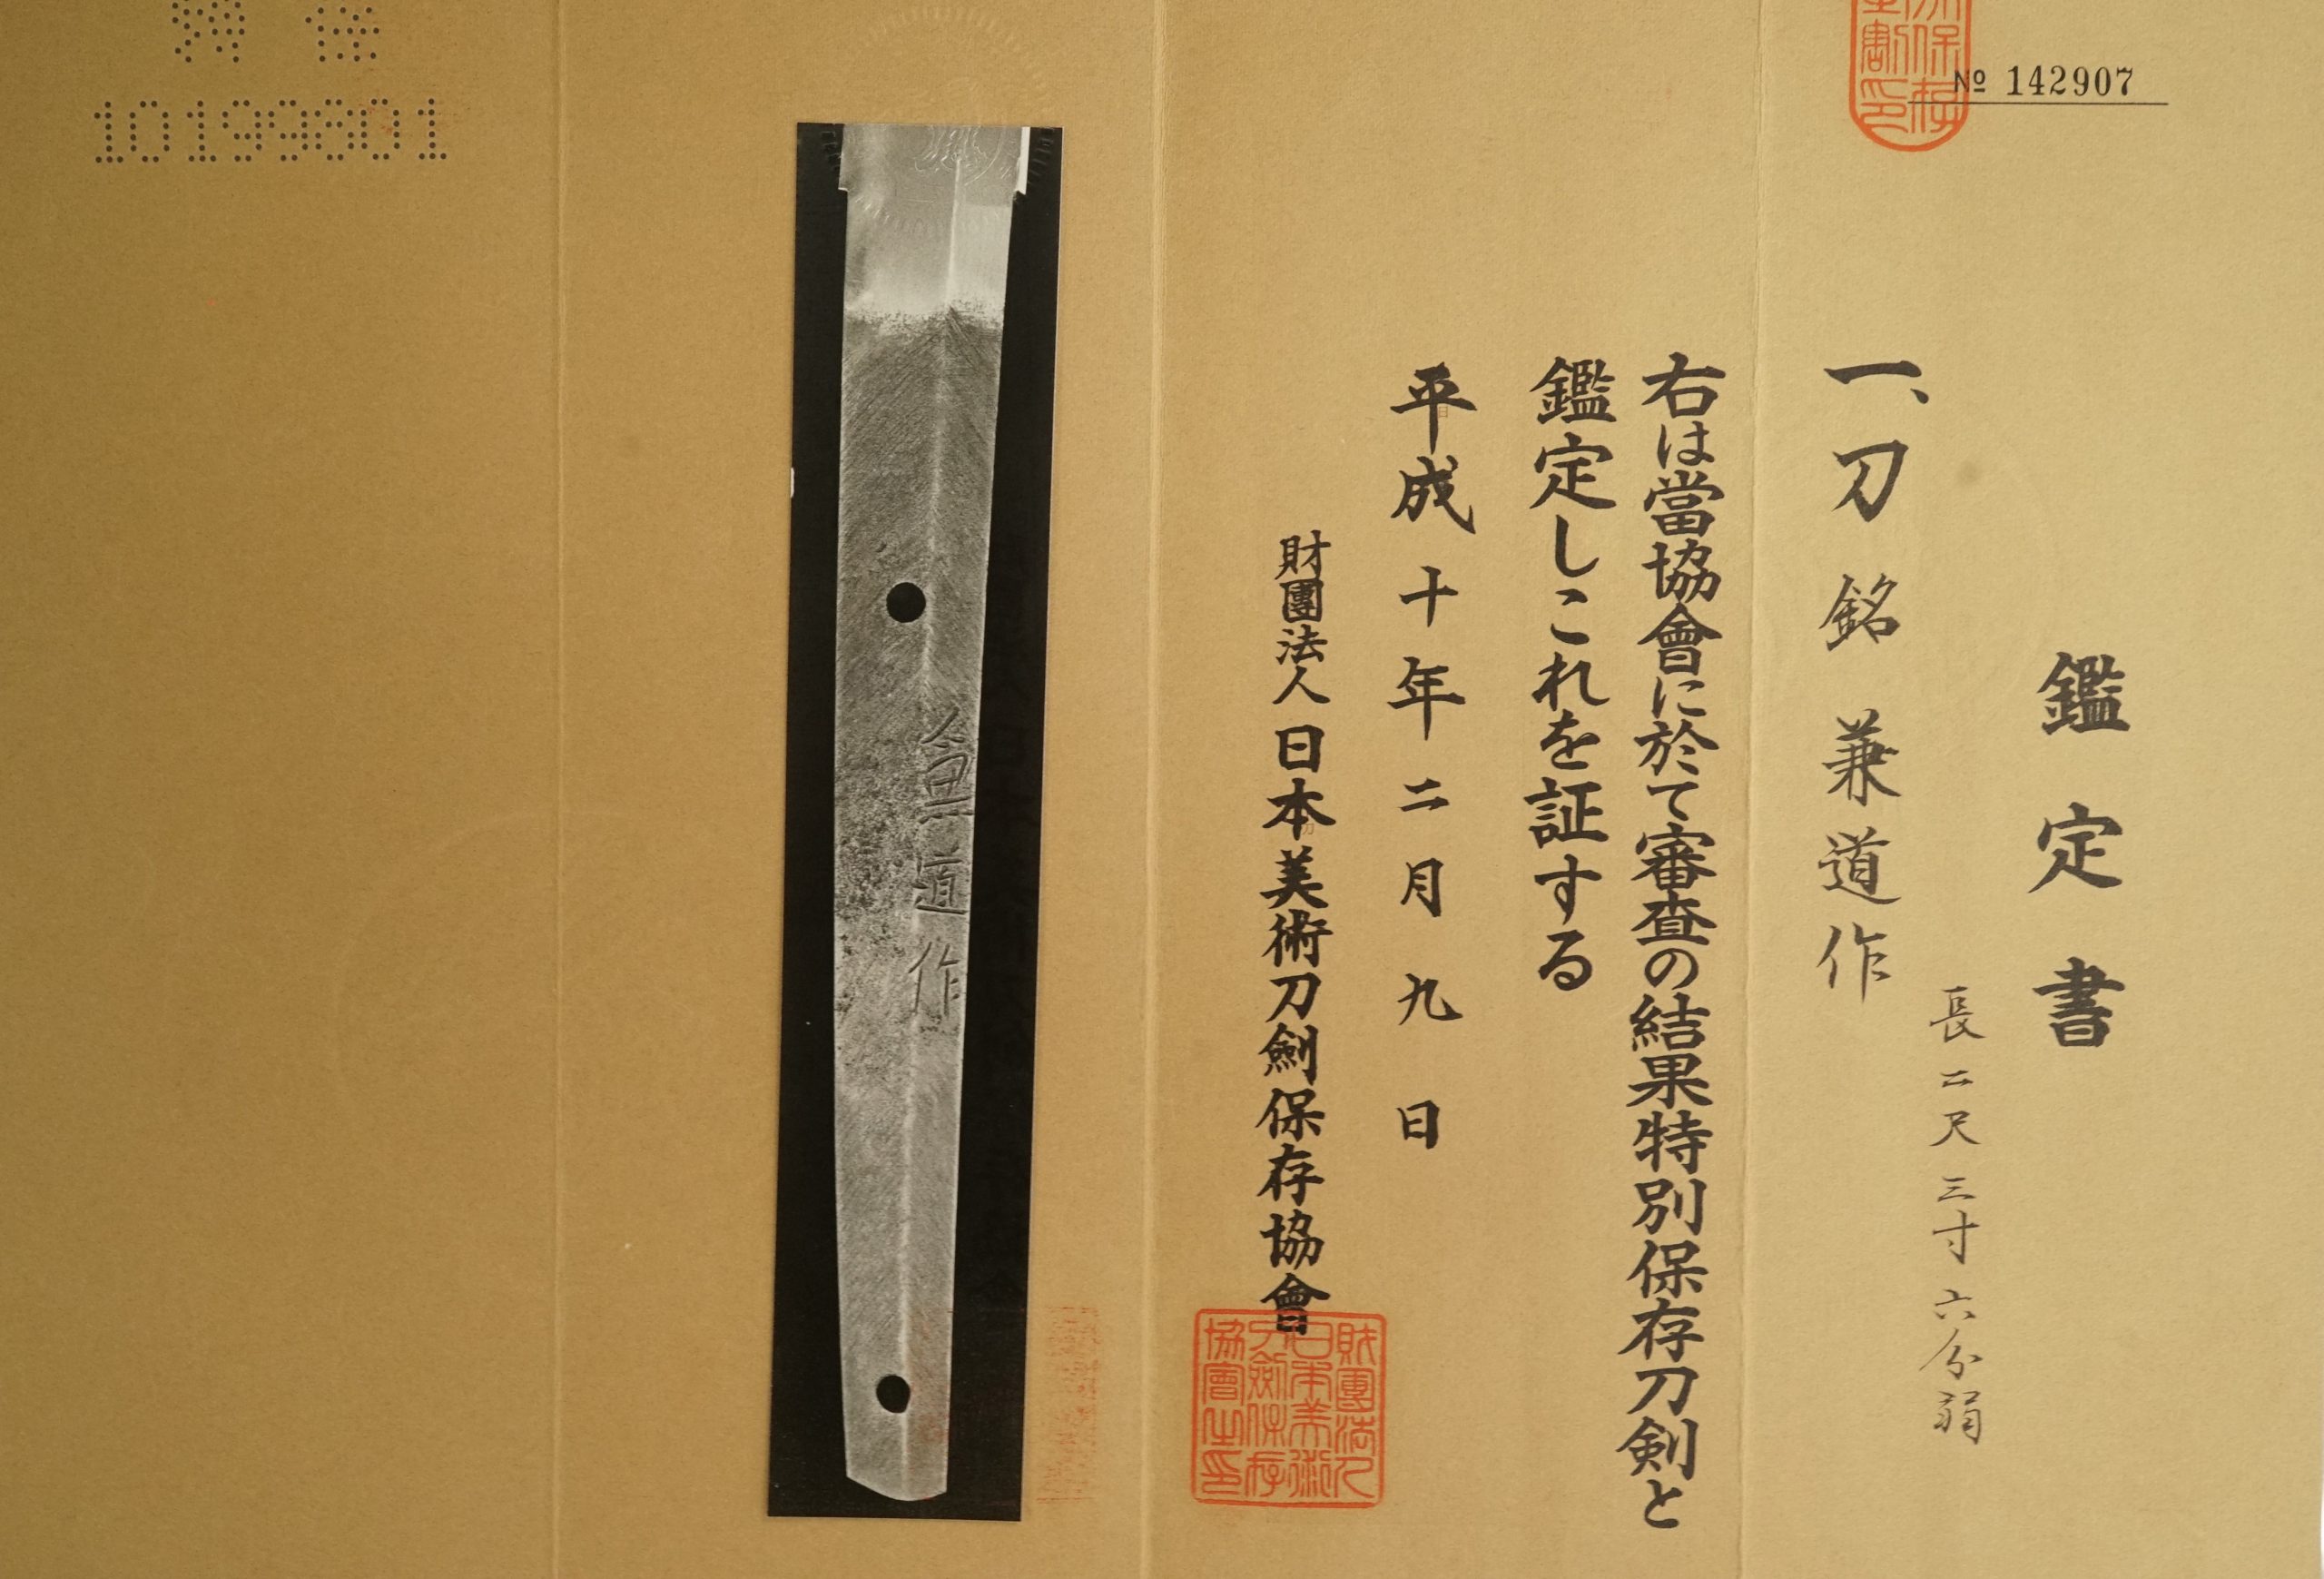 № 142907
鑑定書
長二尺三寸六分弱
一、刀 銘 兼道作
右は當協會に於て審査の結果特別保存刀剣と
鑑定しこれを証する
平成十年二月九日
財團法人日本美術刀剣保存協會
財團法人
日本美術
刀劍保存
協會之印
兼道作
特保
10199801